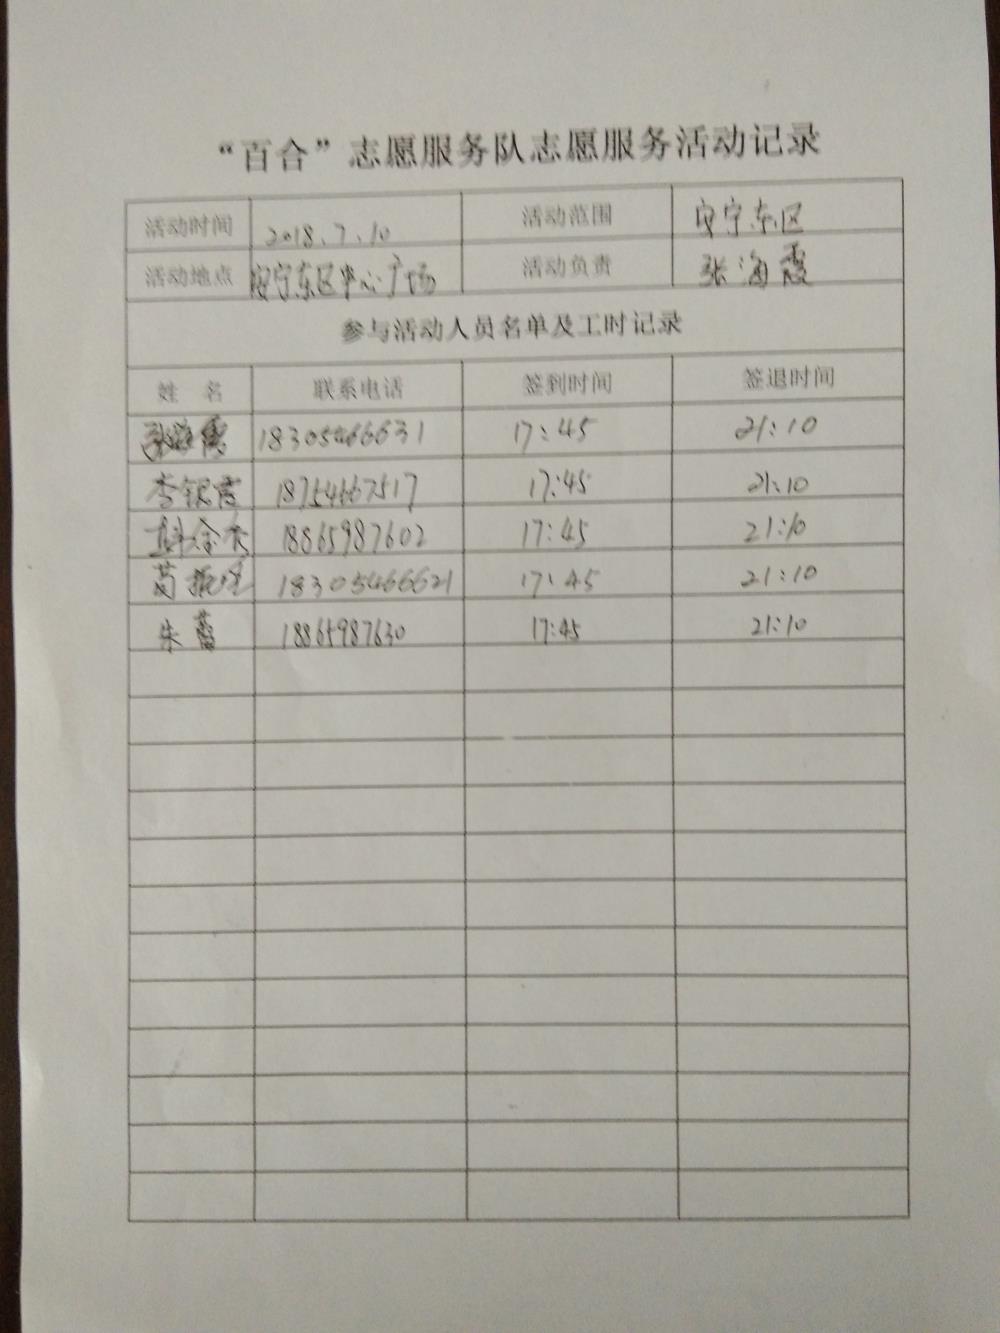 “百合”志愿服务队志愿服务活动记录
活动时间 2018.7.10 活动范围 安宁东区
活动地点 安宁东区中心广场 活动负责 张海霞
参与活动人员名单及工时记录
姓 名 联系电话 签到时间 签退时间
张海霞 18305466631 17:45 21:10
李银霞 18754667517 17:45 21:10
18865987602 17:45 21:10
18305466621 17:45 21:10
朱蕾 18865987630 17:45 21:10